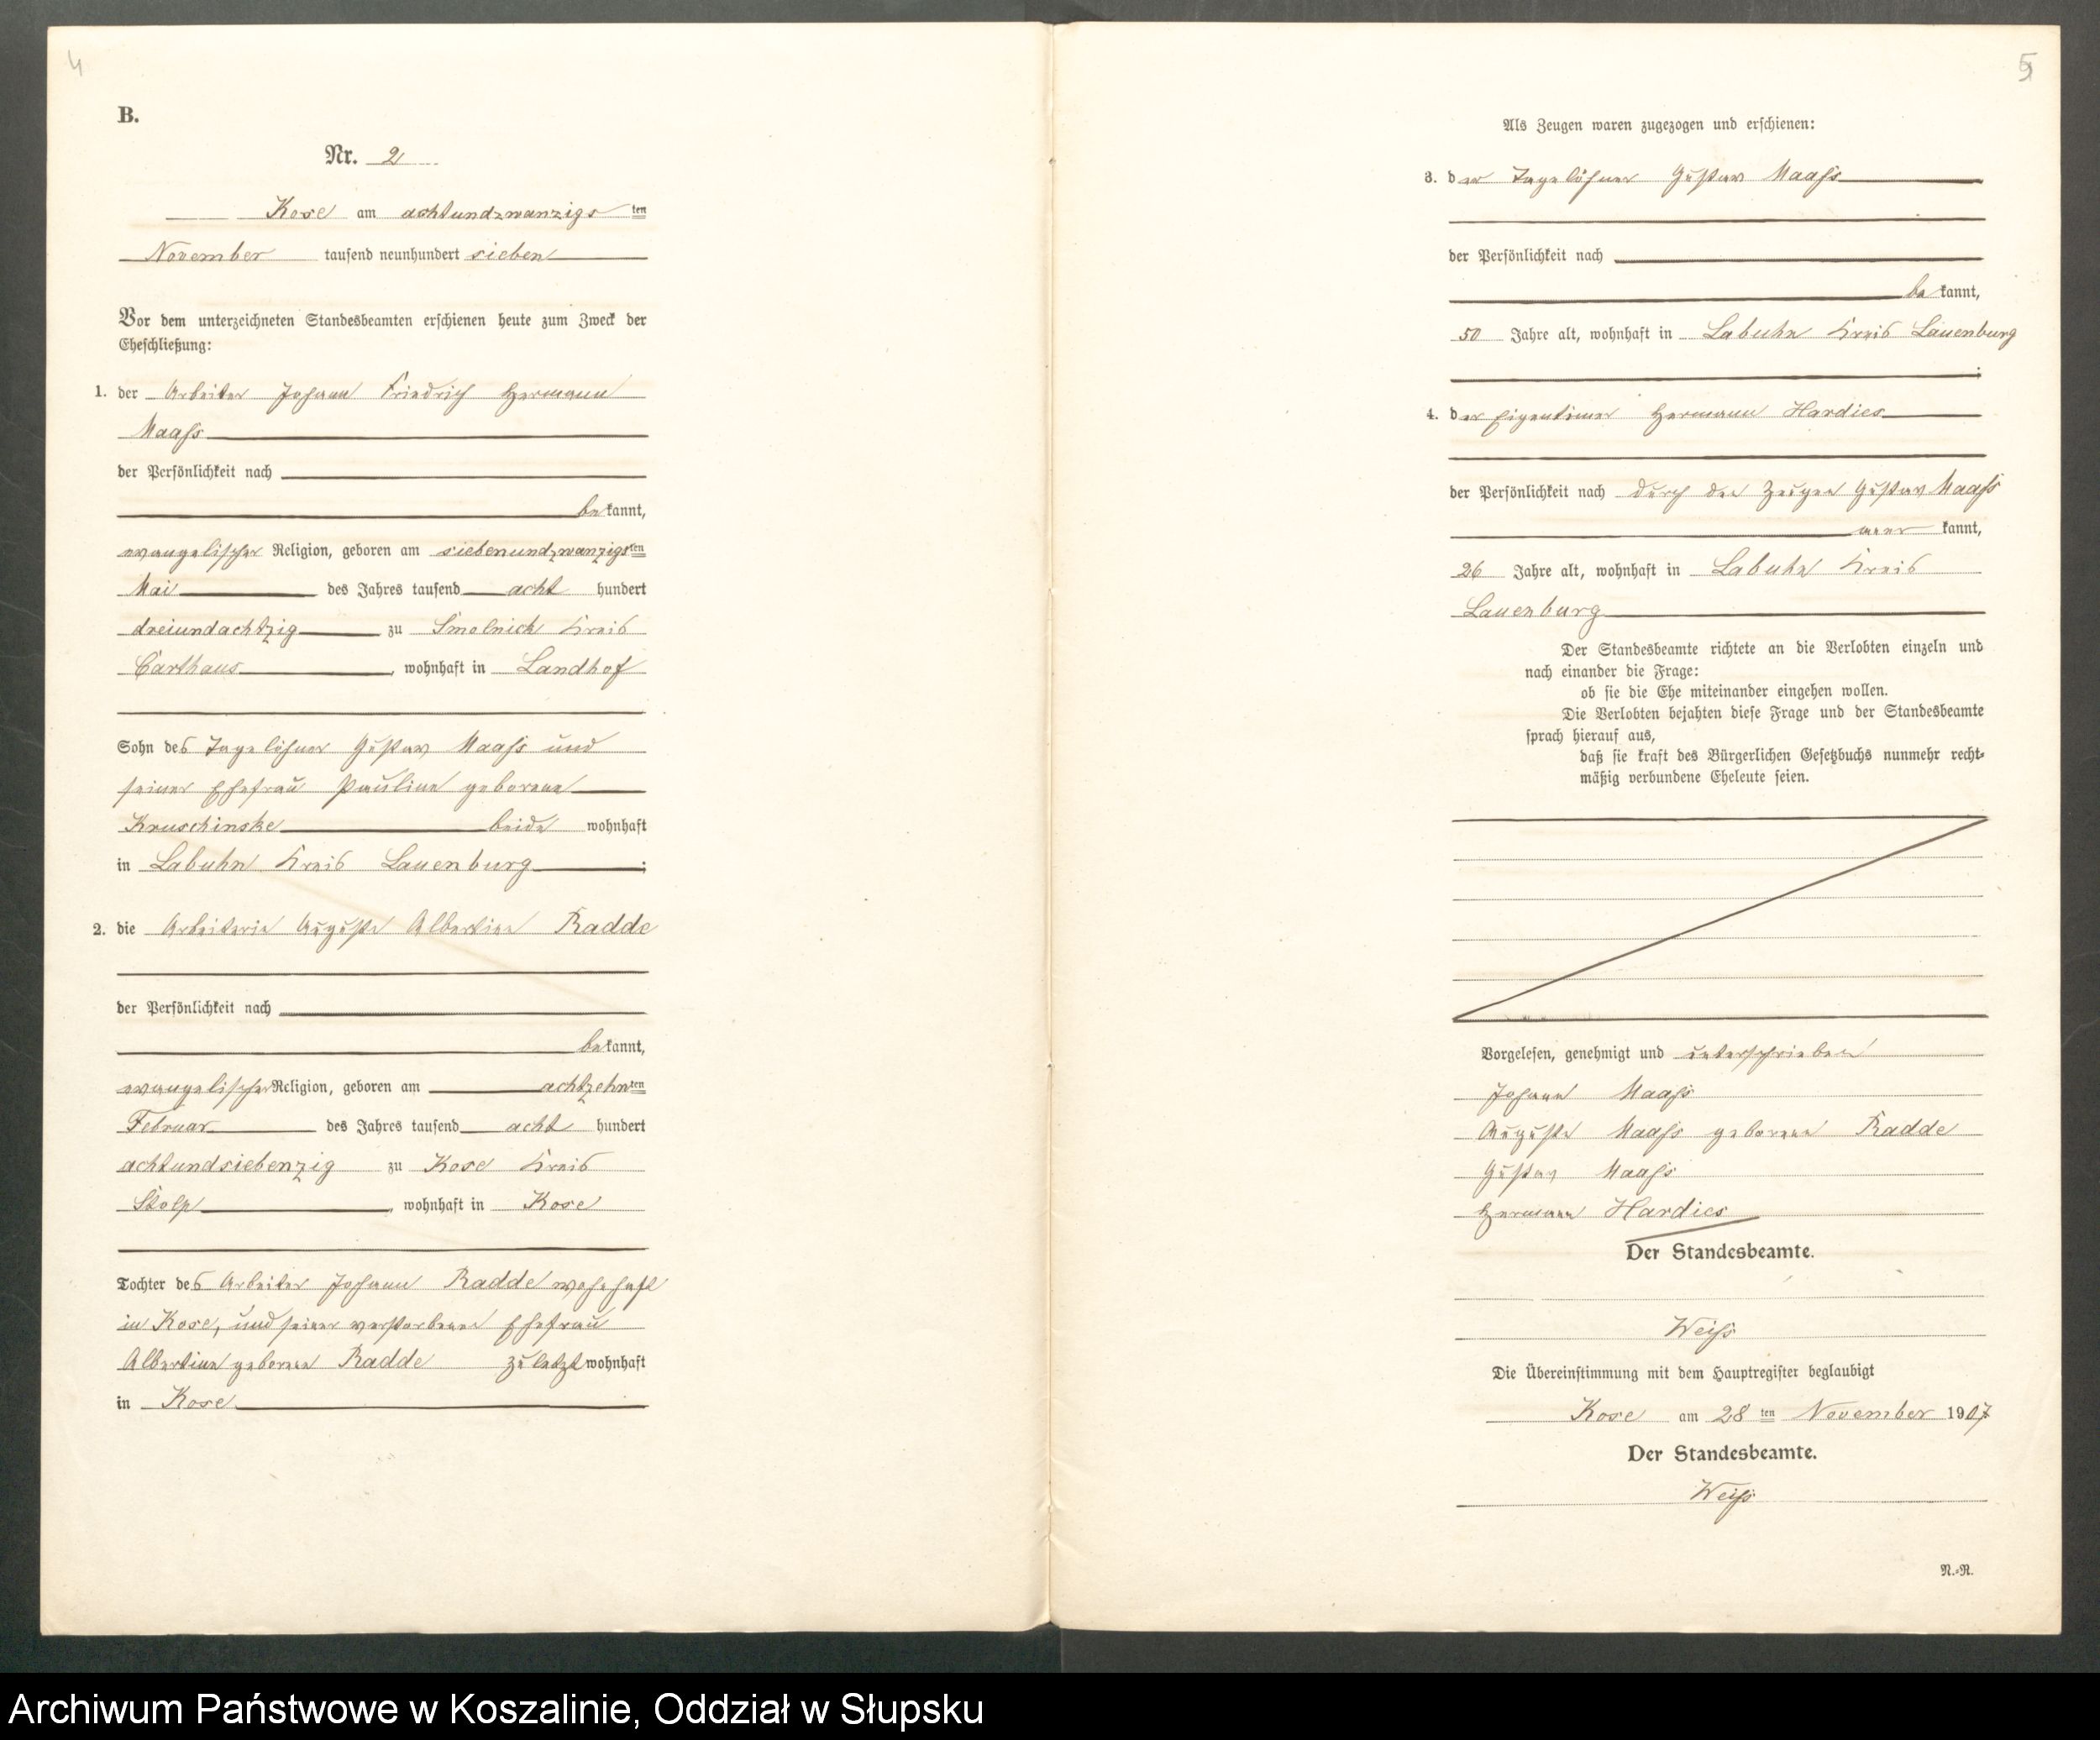 4
B.
Nr. 2
Kose am achtundzwanzigsten
November tausend neunhundert sieben
Vor dem unterzeichneten Standesbeamten erschienen heute zum Zweck der
Eheschließung:
1. der Arbeiter Johann Friedrich Hermann
Maaß
der Persönlichkeit nach
bekannt,
evangelischer Religion, geboren am siebenundzwanzigsten
Mai des Jahres tausend acht hundert
dreiundachtzig zu Smolnick Kreis
Carthaus, wohnhaft in Landhof
Sohn des Tagelöhner Gustav Maaß und
seiner Ehefrau Pauline geborene
Kruschinske beide wohnhaft
in Labuhn Kreis Lauenburg;
2. die Arbeiterin Auguste Albertine Radde
der Persönlichkeit nach
bekannt,
evangelischer Religion, geboren am achtzehnten
Februar des Jahres tausend acht hundert
achtundsiebenzig zu Kose Kreis
Stolp, wohnhaft in Kose
Tochter des Arbeiter Johann Radde wohnhaft
in Kose, und seiner verstorbenen Ehefrau
Albertine geborene Radde zuletzt wohnhaft
in Kose
5
Als Zeugen waren zugezogen und erschienen:
3. der Tagelöhner Gustav Maaß
der Persönlichkeit nach
bekannt,
50 Jahre alt, wohnhaft in Labuhn Kreis Lauenburg
;
4. der Eigentümer Hermann Hardies
der Persönlichkeit nach durch den Zeugen Gustav Maaß
anerkannt,
26 Jahre alt, wohnhaft in Labuhn Kreis
Lauenburg
Der Standesbeamte richtete an die Verlobten einzeln und
nach einander die Frage:
ob sie die Ehe miteinander eingehen wollen.
Die Verlobten bejahten diese Frage und der Standesbeamte
sprach hierauf aus,
daß sie kraft des Bürgerlichen Gesetzbuchs nunmehr recht-
mäßig verbundene Eheleute seien.
Vorgelesen, genehmigt und unterschrieben
Johann Maaß
Auguste Maaß geborene Radde
Gustav Maaß
Hermann Hardies
Der Standesbeamte.
Weiß
Die Übereinstimmung mit dem Hauptregister beglaubigt
Kose am 28ten November 1907
Der Standesbeamte.
Weiß
N.-R.
Archiwum Państwowe w Koszalinie, Oddział w Słupsku